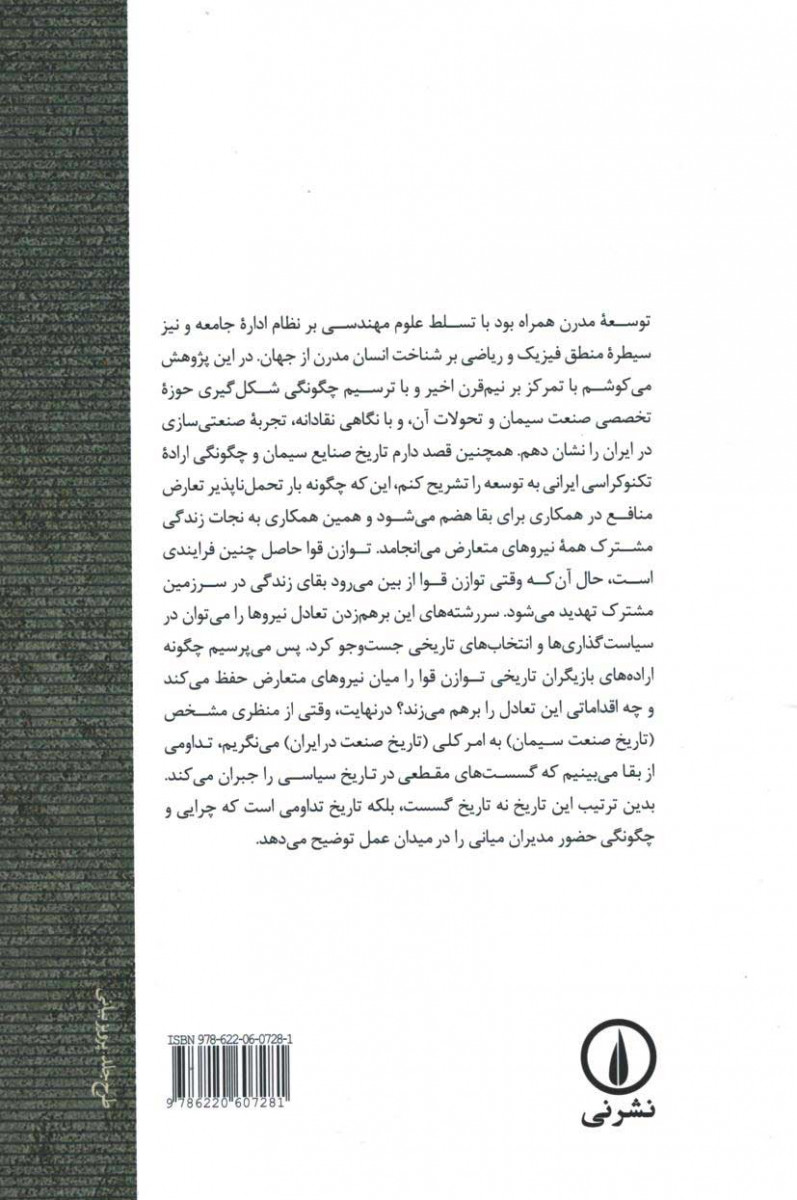 توسعهٔ مدرن همراه بود با تسلط علوم مهندسی بر نظام ادارهٔ جامعه و نیز
سیطرهٔ منطق فیزیک و ریاضی بر شناخت انسان مدرن از جهان. در این پژوهش
می‌کوشم با تمرکز بر نیم‌قرن اخیر و با ترسیم چگونگی شکل‌گیری حوزهٔ
تخصصی صنعت سیمان و تحولات آن، و با نگاهی نقادانه، تجربهٔ صنعتی‌سازی
در ایران را نشان دهم. همچنین قصد دارم تاریخ صنایع سیمان و چگونگی ارادهٔ
تکنوکراسی ایرانی به توسعه را تشریح کنم، این که چگونه بار تحمل‌ناپذیر تعارض
منافع در همکاری برای بقا هضم می‌شود و همین همکاری به نجات زندگی
مشترک همهٔ نیروهای متعارض می‌انجامد. توازن قوا حاصل چنین فرایندی
است، حال آن‌که وقتی توازن قوا از بین می‌رود بقای زندگی در سرزمین
مشترک تهدید می‌شود. سررشته‌های این برهم‌زدن تعادل نیروها را می‌توان در
سیاست‌گذاری‌ها و انتخاب‌های تاریخی جست‌وجو کرد. پس می‌پرسیم چگونه
اراده‌های بازیگران تاریخی توازن قوا را میان نیروهای متعارض حفظ می‌کند
و چه اقداماتی این تعادل را برهم می‌زند؟ درنهایت، وقتی از منظری مشخص
(تاریخ صنعت سیمان) به امر کلی (تاریخ صنعت در ایران) می‌نگریم، تداومی
از بقا می‌بینیم که گسست‌های مقطعی در تاریخ سیاسی را جبران می‌کند.
بدین ترتیب این تاریخ نه تاریخ گسست، بلکه تاریخ تداومی است که چرایی و
چگونگی حضور مدیران میانی را در میدان عمل توضیح می‌دهد.
ISBN 978-622-06-0728-1
9 786220 607281
نشرنی
طرح جلد: